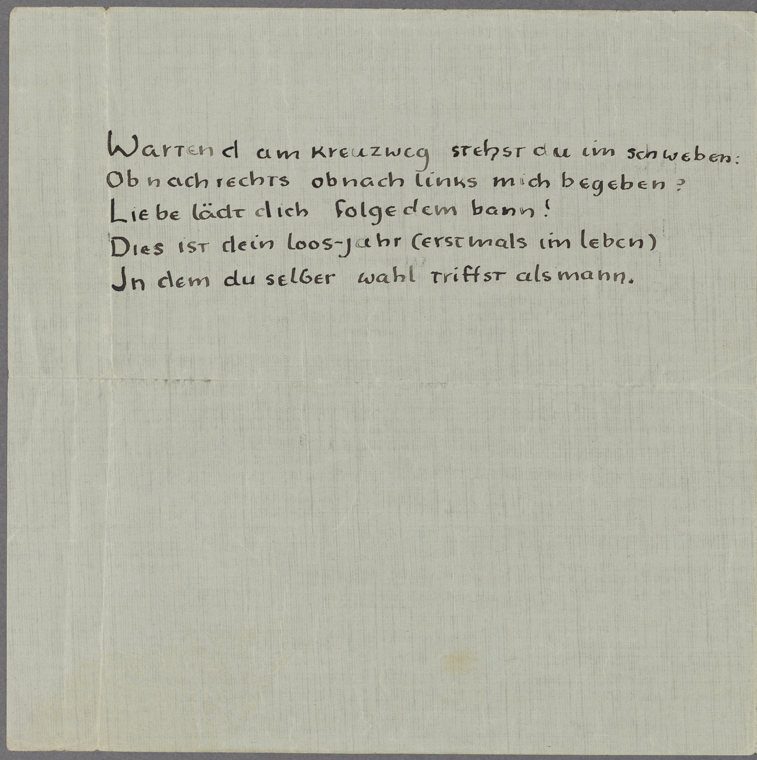 Wartend am kreuzweg stehst du im schweben:
Ob nach rechts ob nach links mich begeben?
Liebe lädt dich folge dem bann!
Dies ist dein loos-jahr (erstmals im leben)
In dem du selber wahl triffst als mann.